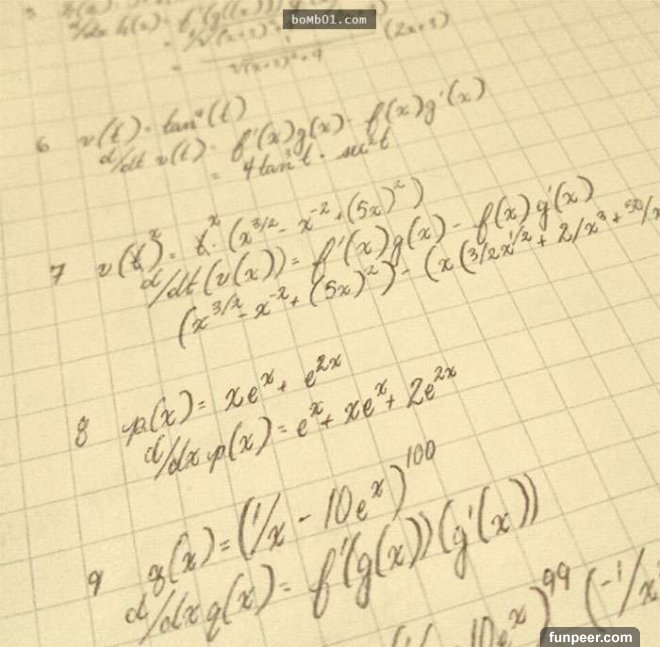 boMb01.com
(2x+3)
6 v(t) = tan⁴(t)
d/dt v(t) = f'(x)g(x) - f(x)g'(x)
= 4tan³t · sec²t
7 v(x) = x · (x^3/2 - x^-2 + (5x)²)
d/dt(v(x)) = f'(x)g(x) - f(x)g'(x)
(x^3/2 - x^-2 + (5x)²) - (x(3/2x^1/2 + 2/x³ + 50/x
8 p(x) = xe^x + e^2x
d/dx p(x) = e^x + xe^x + 2e^2x
9 q(x) = (1/x - 10e^x)^100
d/dx q(x) = f'(g(x))(g'(x))
(1/x - 10e^x)^99 (-1/x
funpeer.com